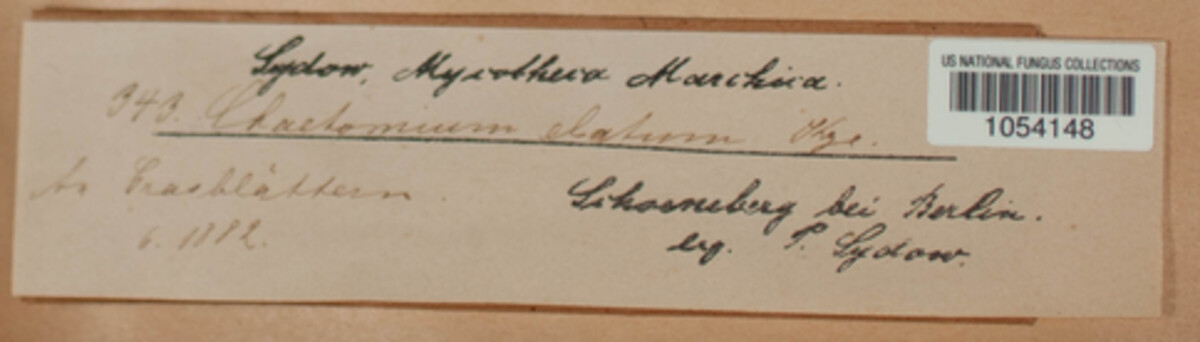 Sydow, Mycotheca Marchica.
US NATIONAL FUNGUS COLLECTIONS
1054148
343. Chaetomium elatum Kze.
An Grasblättern.
6. 1882.
Schoeneberg bei Berlin.
leg. P. Sydow.